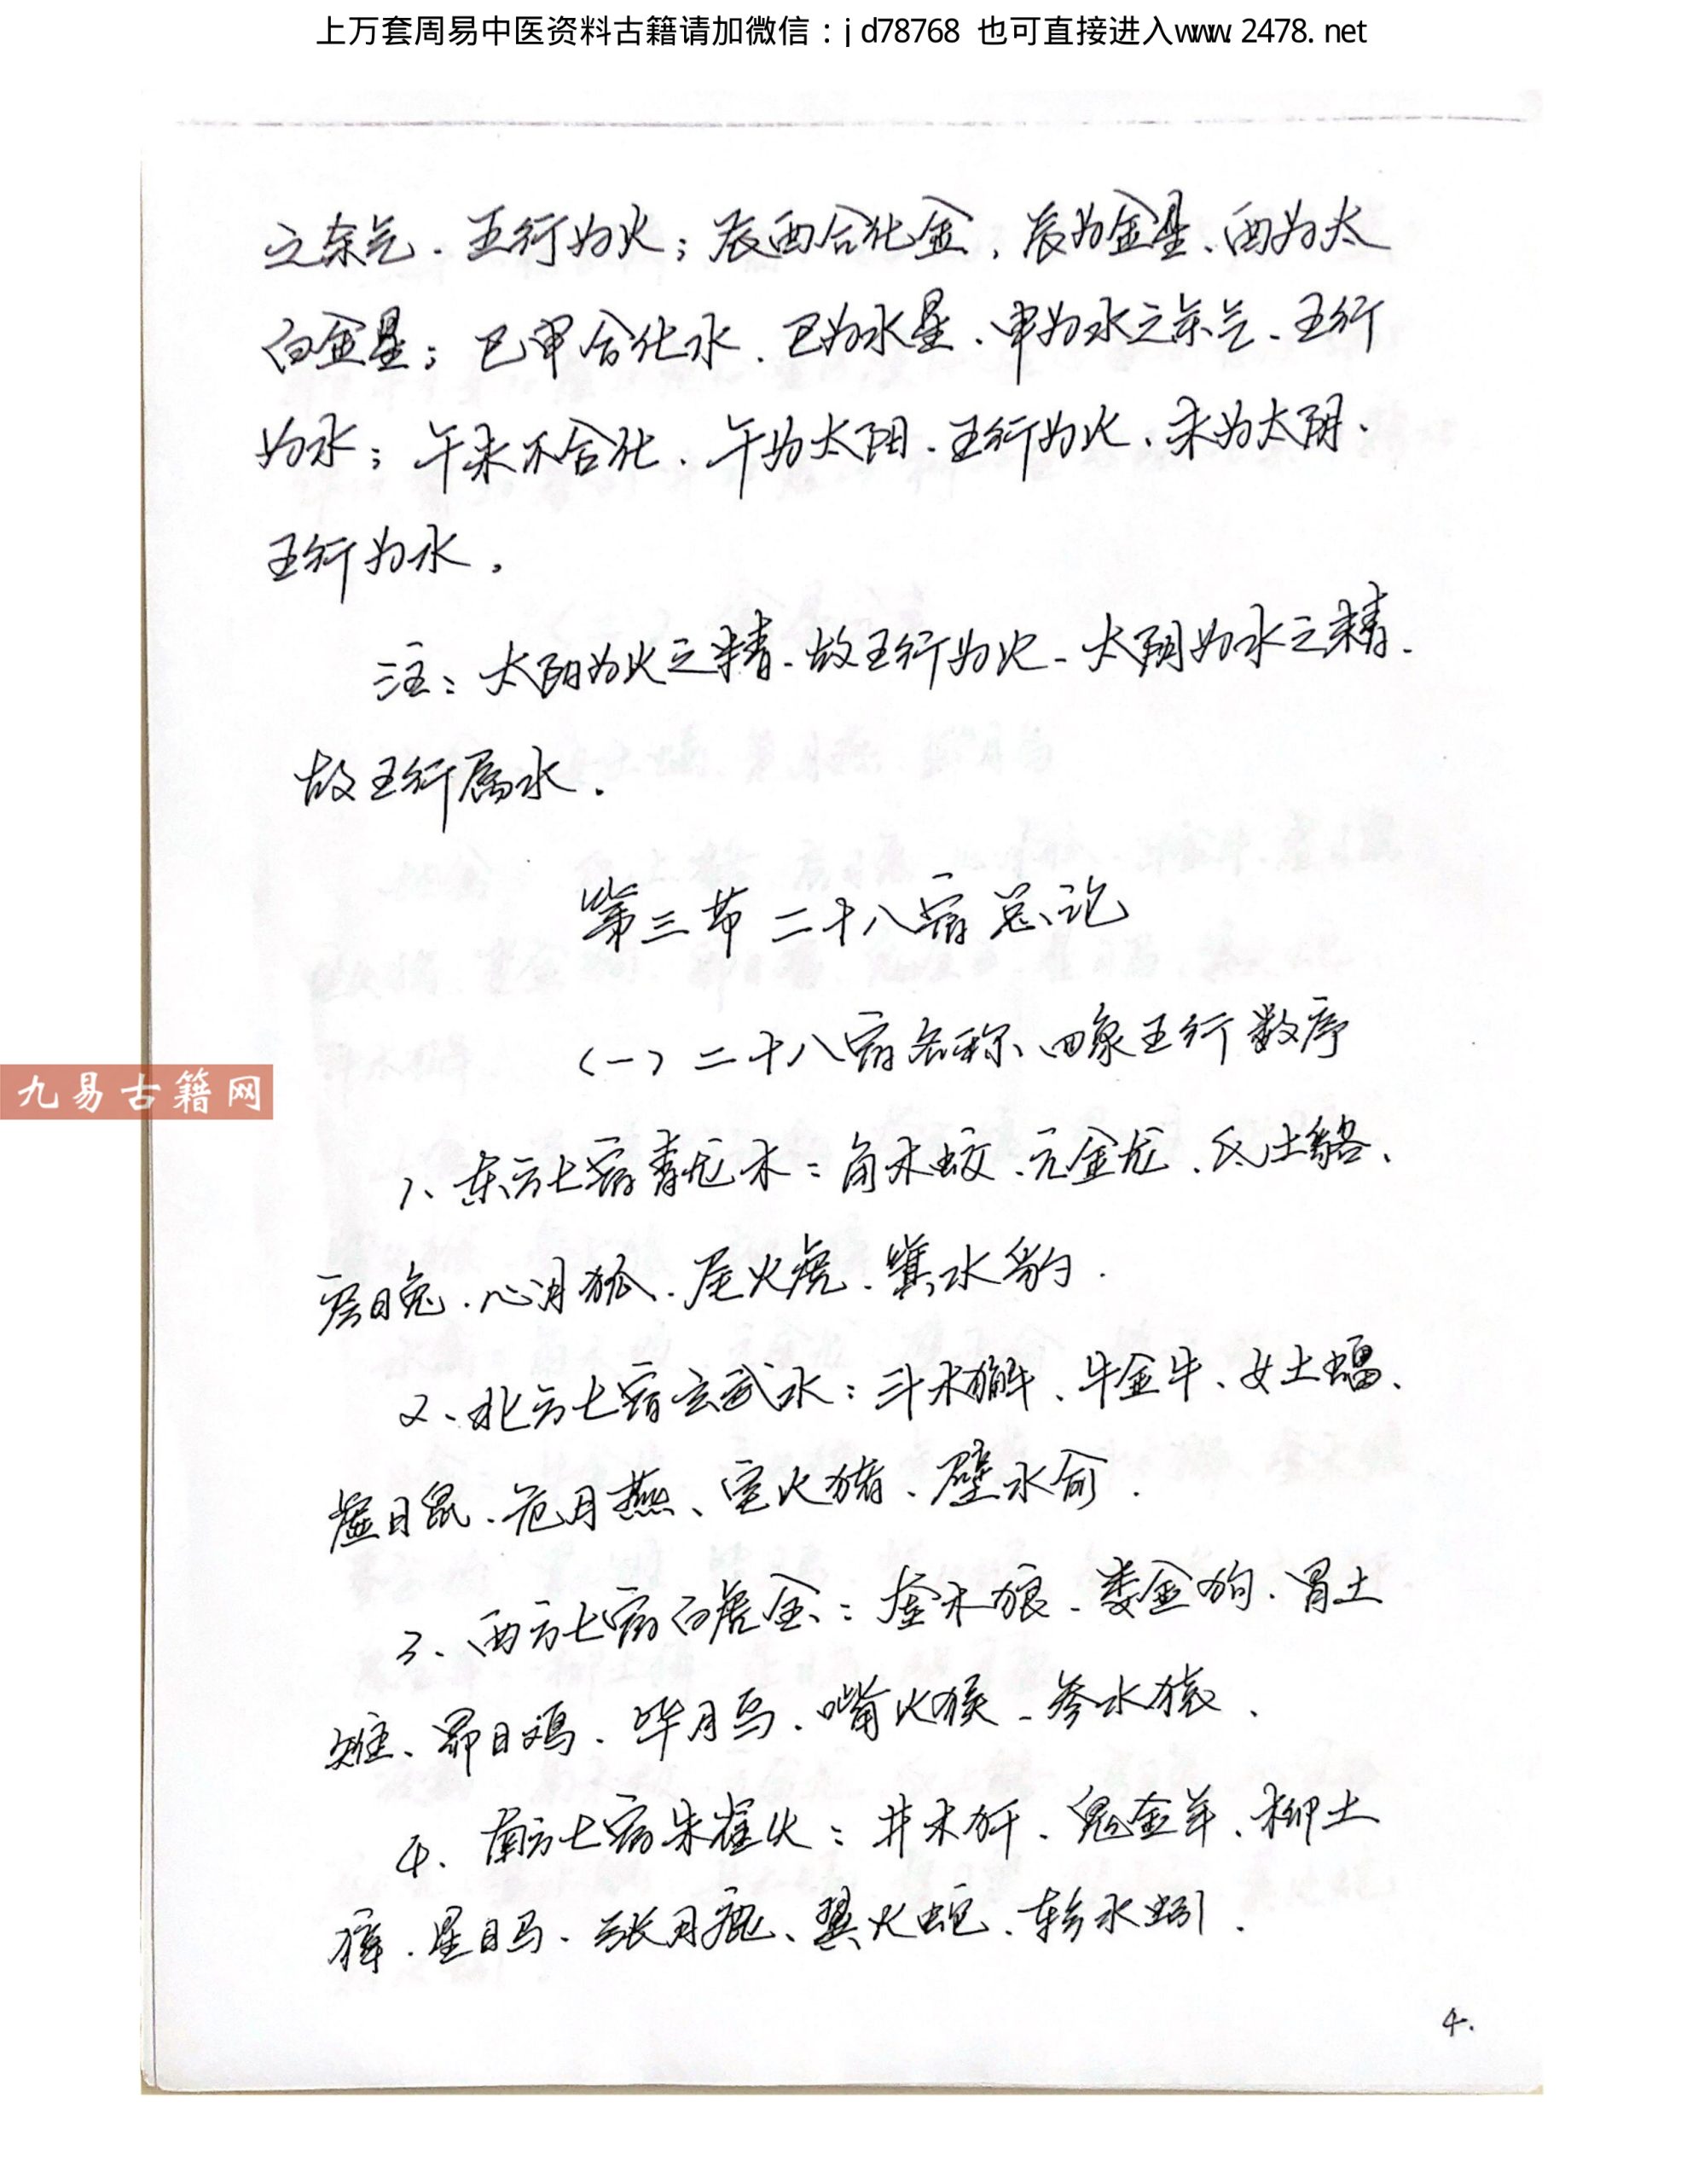 上万套周易中医资料古籍请加微信：jd78768 也可直接进入www.2478.net
之余气、五行为火；辰酉合化金，辰为金星、酉为太
白金星；巳申合化水、巳为水星、申为水之余气、五行
为水；午未不合化、午为太阳、五行为火、未为太阴、
五行为水。
注：太阳为火之精、故五行为火、太阴为水之精、
故五行属水。
第三节 二十八宿总论
（一）二十八宿名称、四象五行数序
九易古籍网
1、东方七宿青龙木：角木蛟、亢金龙、氐土貉、
房日兔、心月狐、尾火虎、箕水豹.
2、北方七宿玄武水：斗木獬、牛金牛、女土蝠、
虚日鼠、危月燕、室火猪、壁水俞.
3、西方七宿白虎金：奎木狼、娄金狗、胃土
雉、昴日鸡、毕月乌、嘴火猴、参水猿、
4、南方七宿朱雀火：井木犴、鬼金羊、柳土
獐、星日马、张月鹿、翼火蛇、轸水蚓.
4.